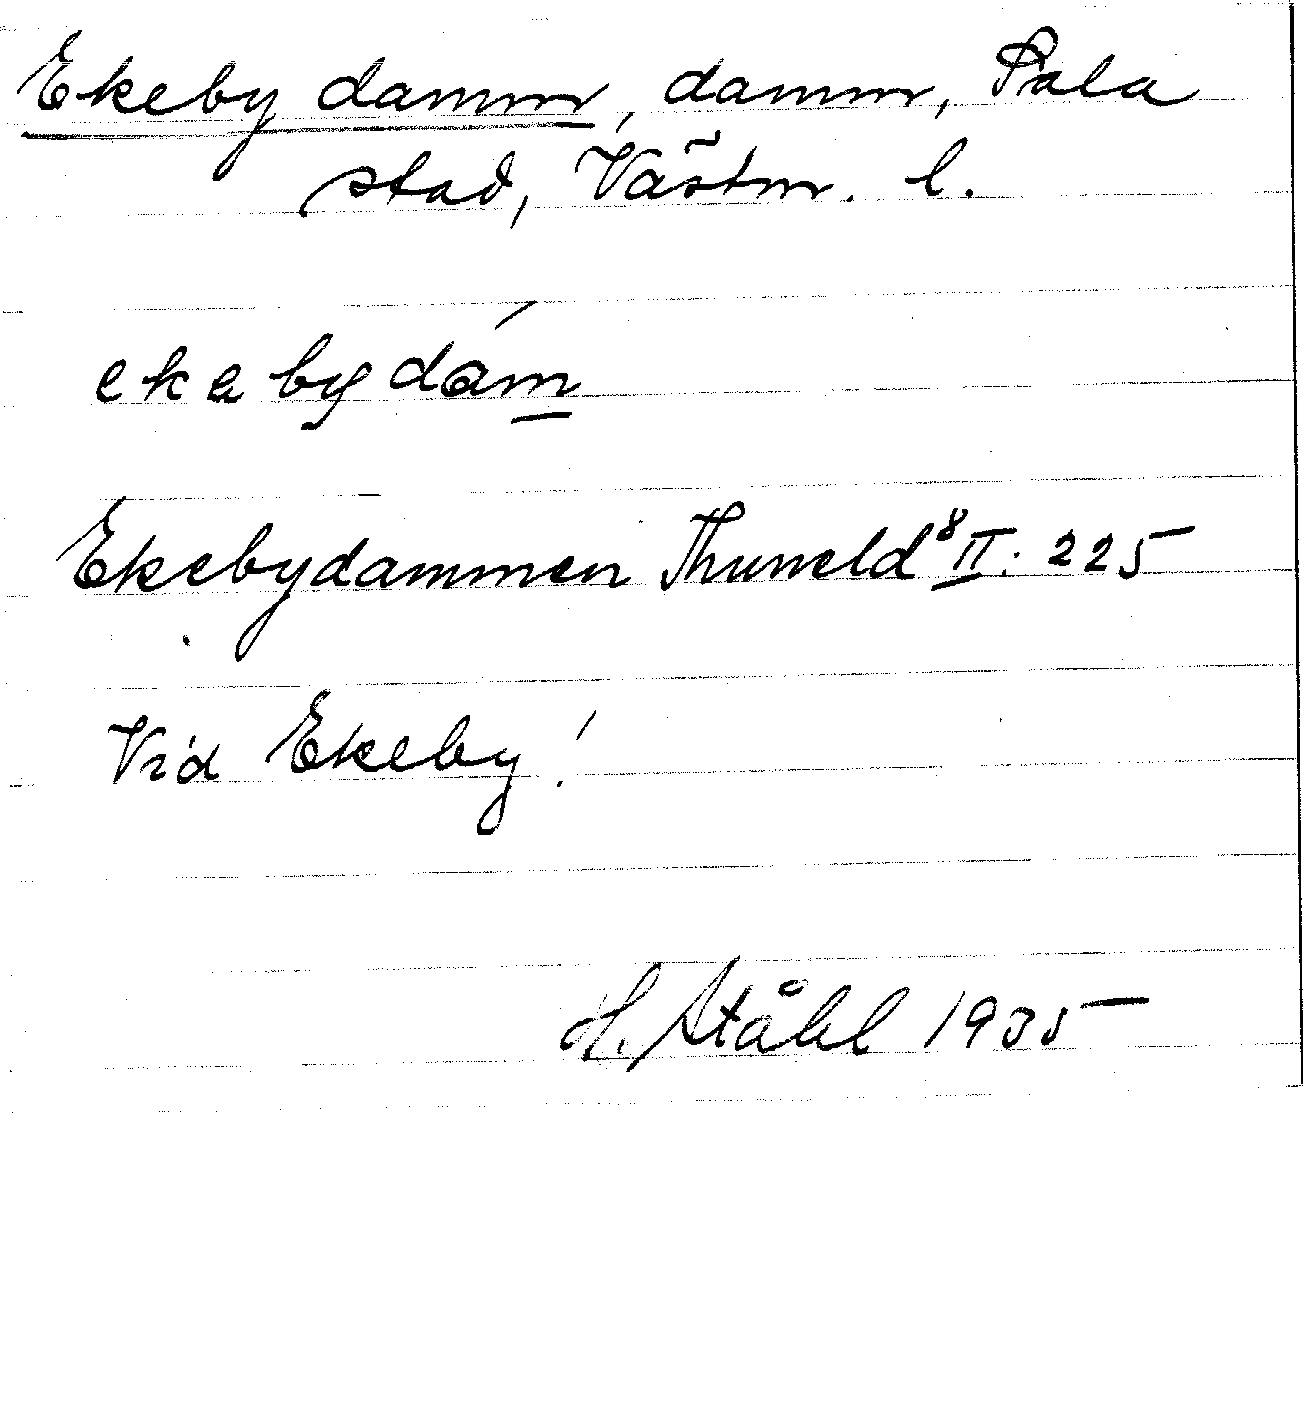 Ekeby damm, damm, Sala
stad, Västm. l.
ekebydám
Ekebydammen Thuneld⁸ II: 225
Vid Ekeby!
H. Ståhl 1935